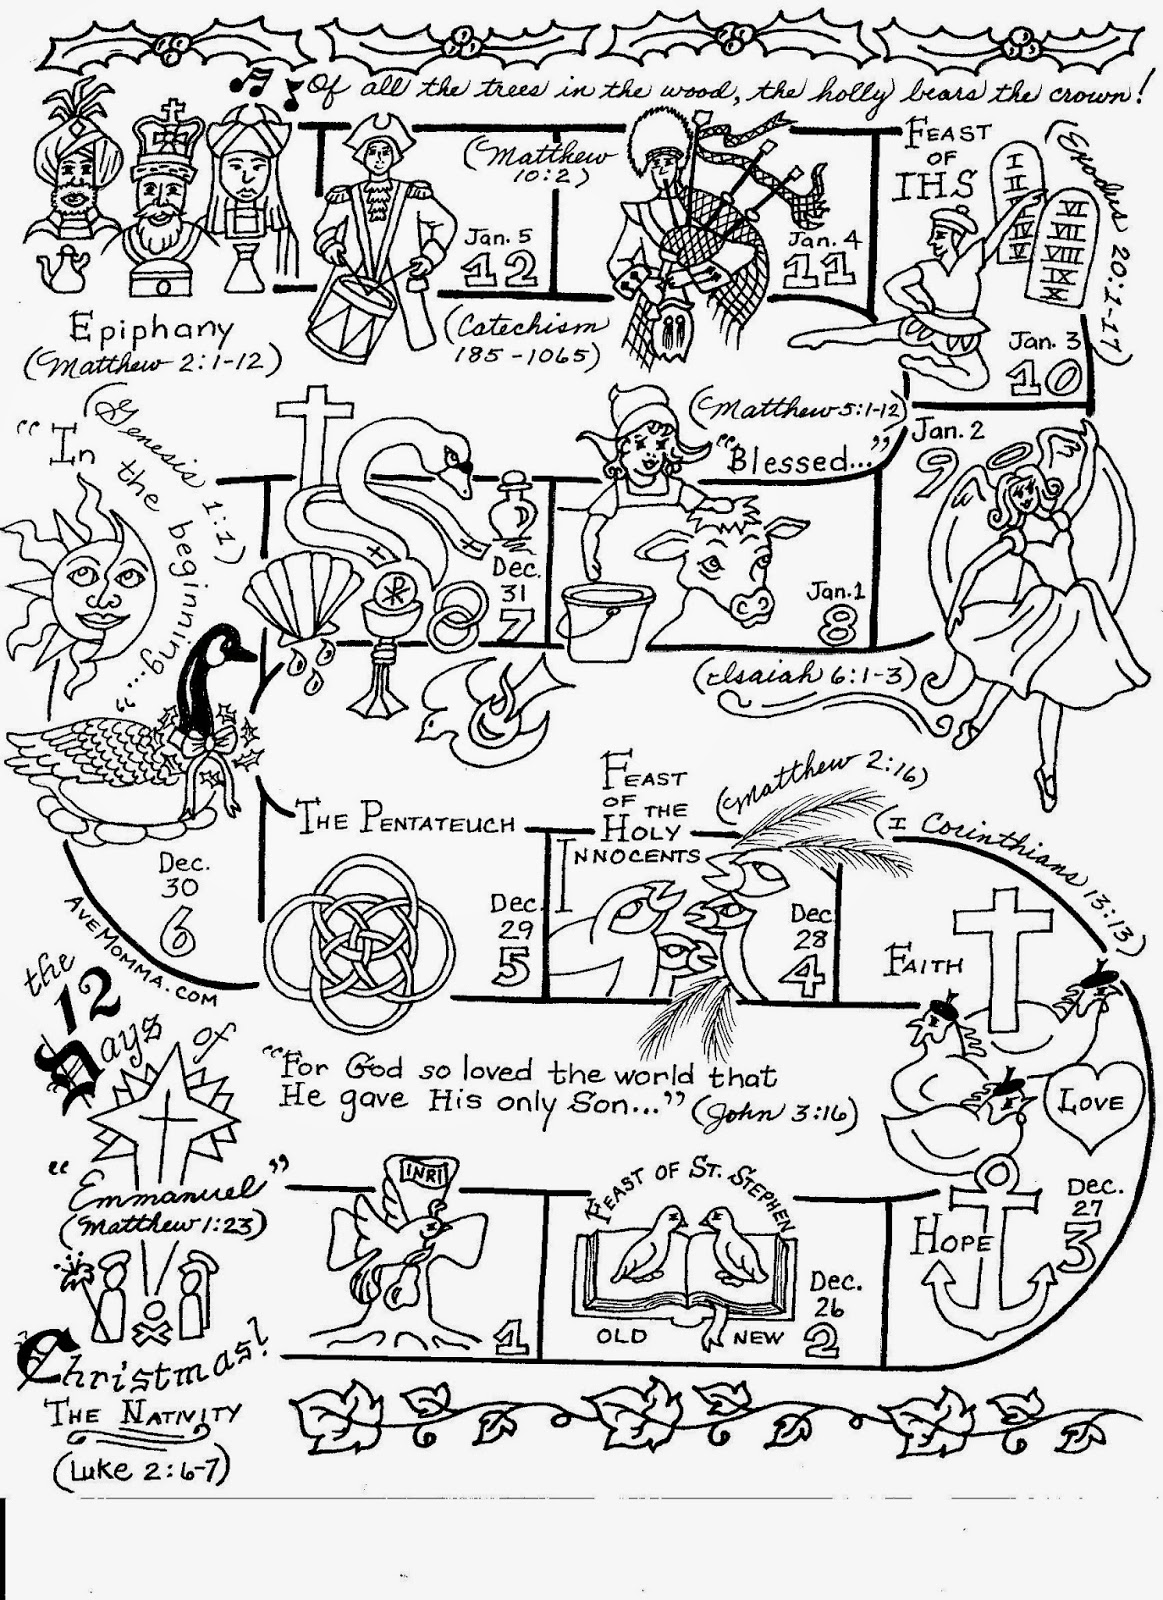 Of all the trees in the wood, the holly bears the crown!
Epiphany
(Matthew 2:1-12)
(Matthew
10:2)
Jan. 5
12
(Catechism
185-1065)
Jan. 4
11
FEAST
OF
IHS
I
II
VI
VII
VIII
IX
X
(Exodus 20:1-17)
Jan. 3
10
"In
the beginning..."
(Genesis 1:1)
Dec.
31
7
(Matthew 5:1-12)
"Blessed..."
Jan. 1
8
Jan. 2
9
(Isaiah 6:1-3)
Dec.
30
6
AVEMOMMA.COM
THE PENTATEUCH
Dec.
29
5
FEAST
OF THE
HOLY
INNOCENTS
(Matthew 2:16)
Dec.
28
4
(I Corinthians 13:13)
FAITH
LOVE
HOPE
Dec.
27
3
the
12
Days of
"For God so loved the world that
He gave His only Son..." (John 3:16)
"Emmanuel"
(Matthew 1:23)
INRI
1
FEAST OF ST. STEPHEN
OLD NEW
Dec.
26
2
Christmas!
THE NATIVITY
(Luke 2:6-7)